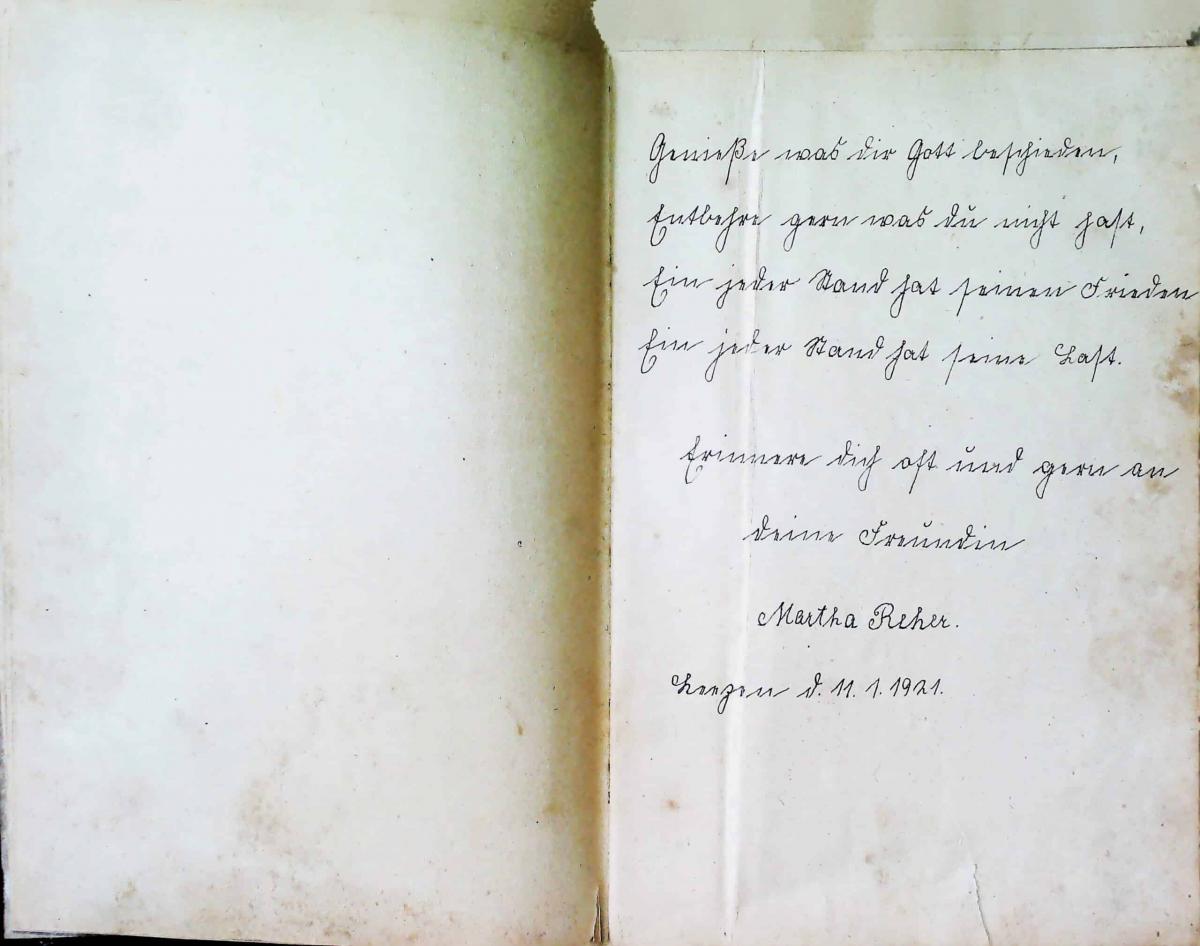 Genieße was dir Gott beschieden,
Entbehre gern was du nicht hast,
Ein jeder Stand hat seinen Frieden
Ein jeder Stand hat seine Last.
Erinnere dich oft und gern an
deine Freundin
Martha Reher.
Leezen d. 11. 1. 1921.